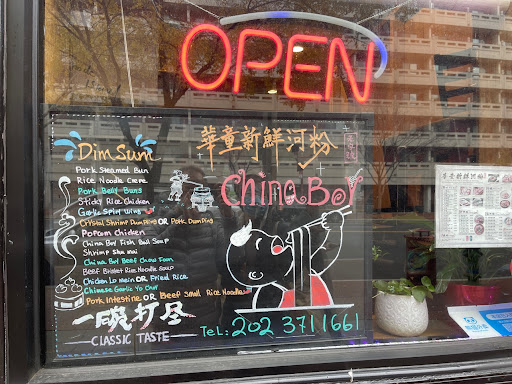 OPEN
Dim Sum
Pork Steamed Bun
Rice Noodle Crepe
Pork Belly Buns
Sticky Rice Chicken
Garlic Spicy Wing
Crystal Shrimp Dumpling OR Pork Dumpling
Popcorn Chicken
China Boy Fish Ball Soup
Shrimp Shu mai
China Boy Beef Chow Foon
Beef Brisket Rice Noodle Soup
Chicken Lo mein OR Fried Rice
Chinese Garlic Yo Choy
Pork Intestine OR Beef Small Rice Noodles
一碗打尽
CLASSIC TASTE
華童新鮮河粉
China Boy
TEL: 202 371 1661